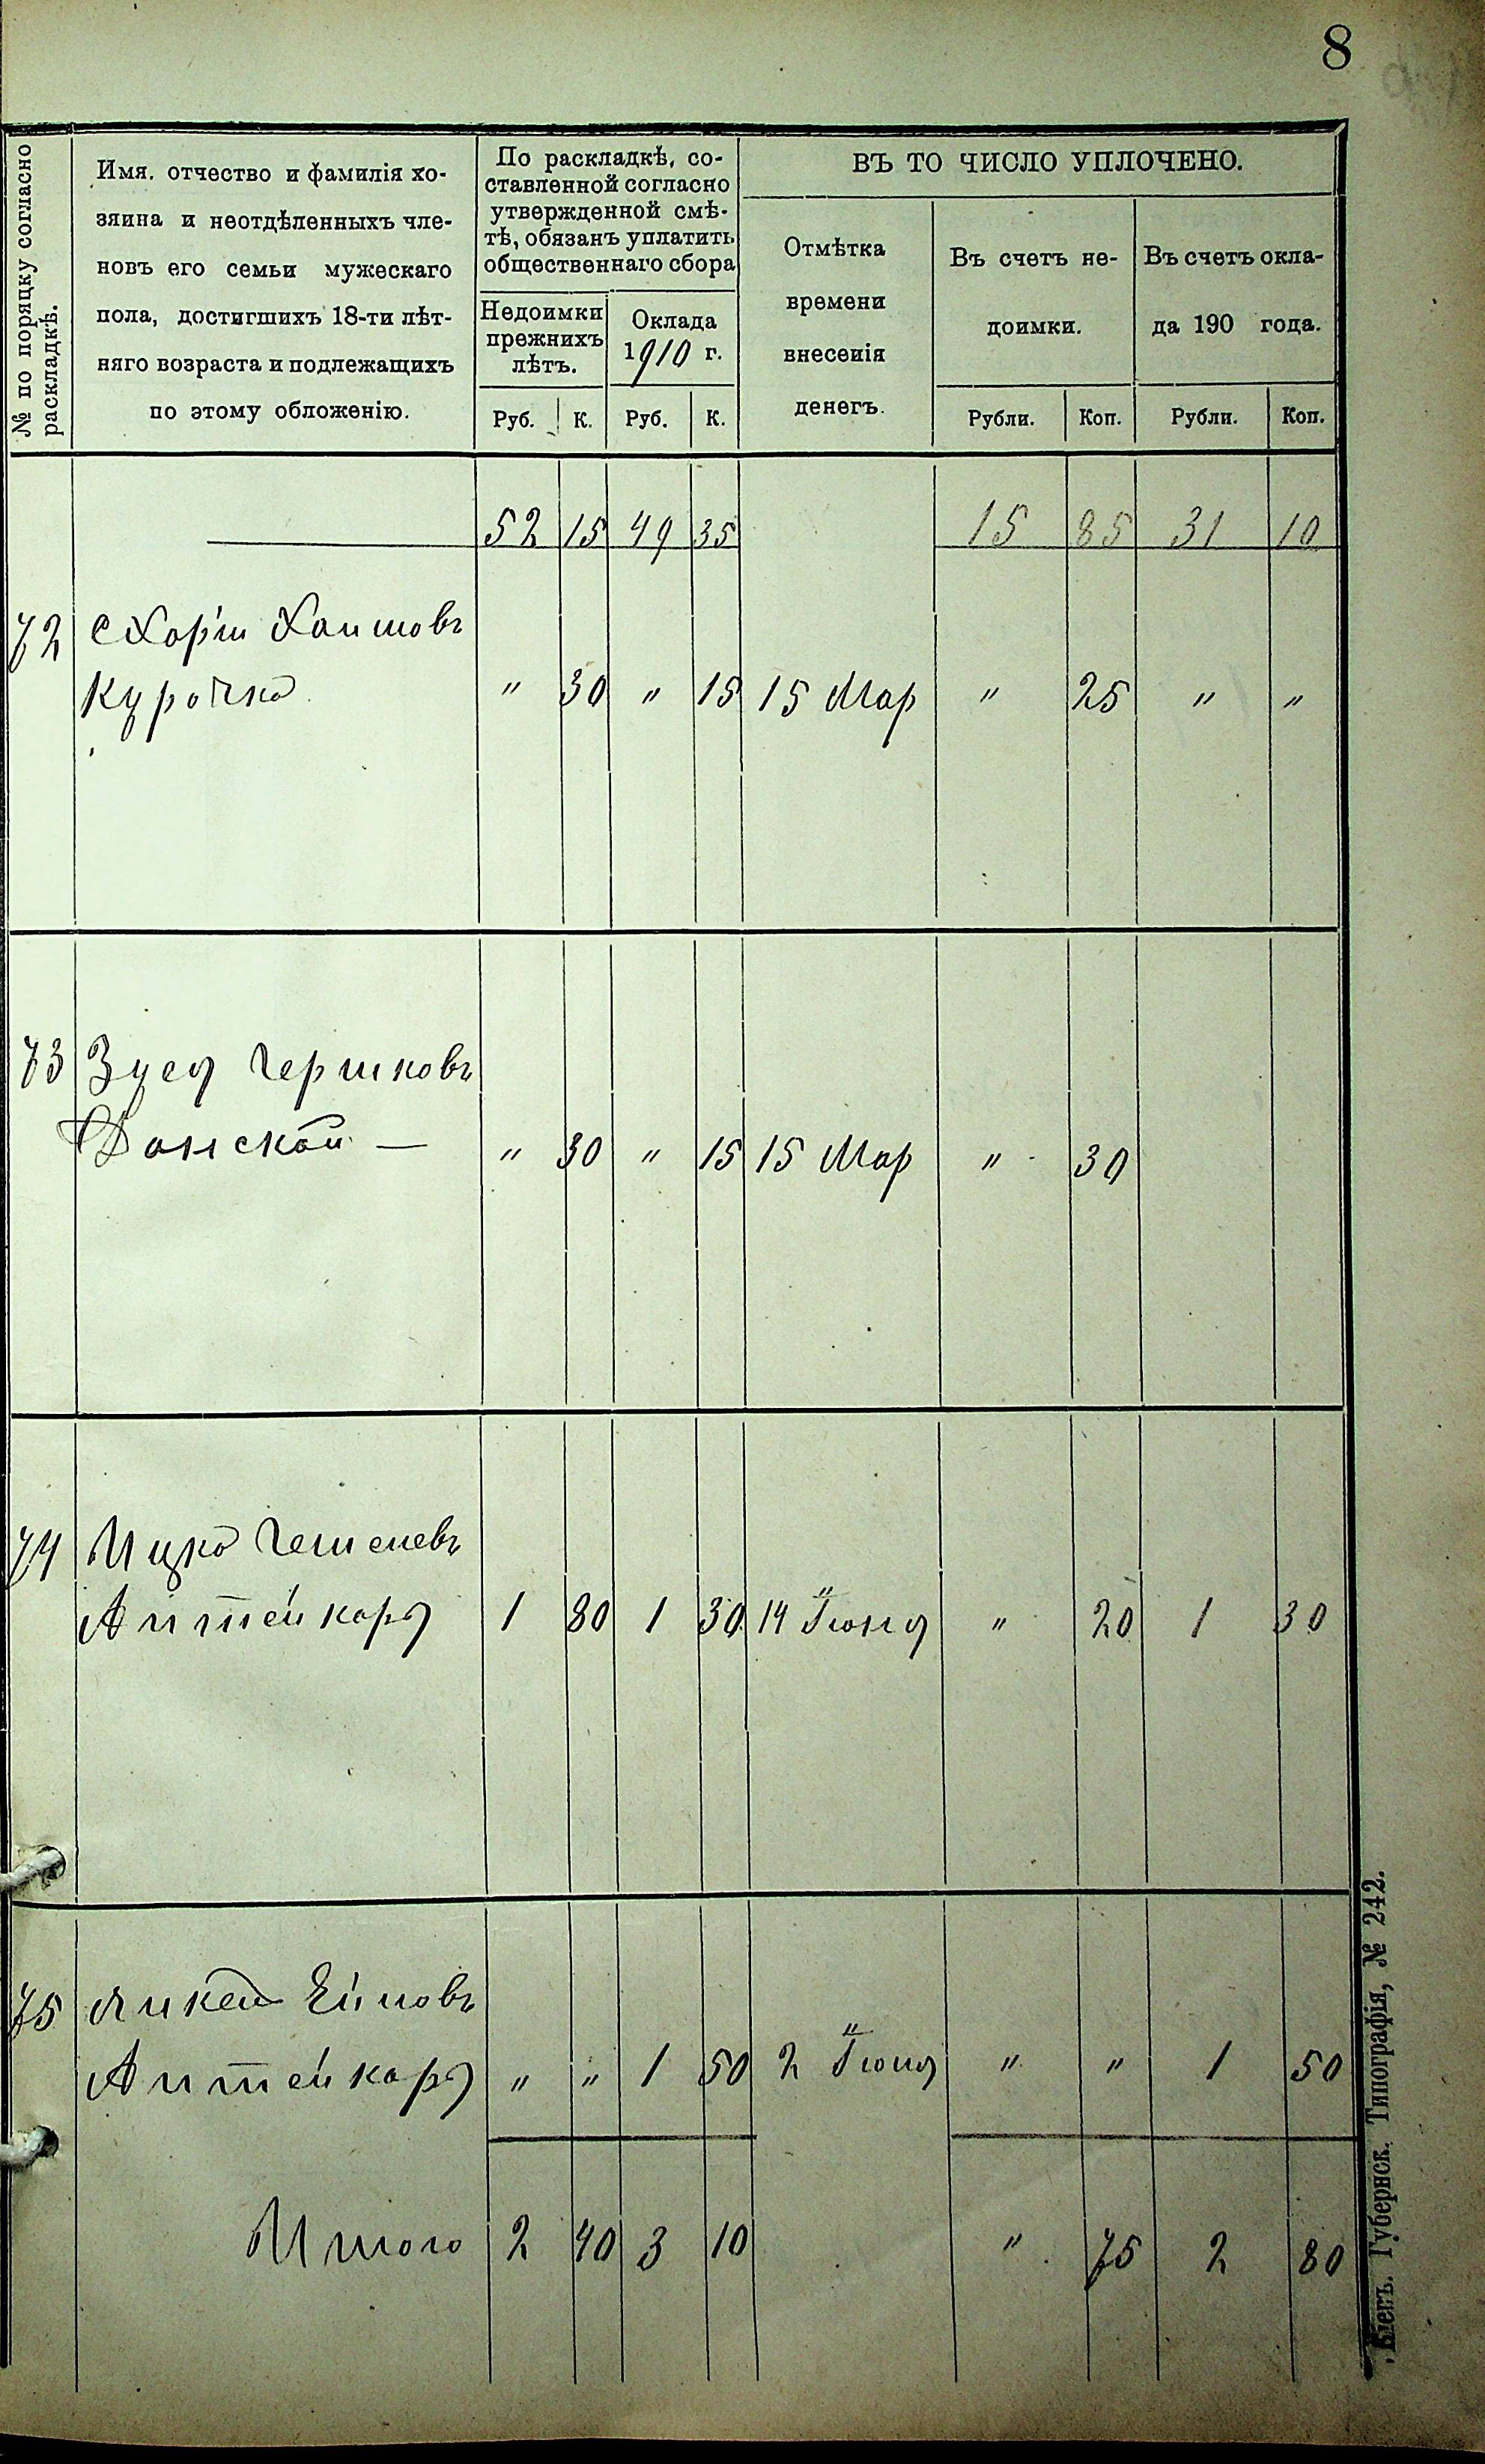 8
№ по поряцку согласно раскладкѣ.
Имя. отчество и фамилія хо-
зяина и неотдѣленныхъ чле-
новъ его семьи мужескаго
пола, достигшихъ 18-ти лѣт-
няго возраста и подлежащихъ
по этому обложенію.
По раскладкѣ, со-
ставленной согласно
утвержденной смѣ-
тѣ, обязанъ уплатить
общественнаго сбора
Недоимки
прежнихъ
лѣтъ.
Оклада
1910 г.
ВЪ ТО ЧИСЛО УПЛОЧЕНО.
Отмѣтка
времени
внесенія
денегъ.
Въ счетъ не-
доимки.
Въ счетъ окла-
да 190 года.
Руб. К. Руб. К. Рубли. Коп. Рубли. Коп.
52 15 49 35 15 85 31 10
72 Хаимовъ
Курочка " 30 " 15 15 Мар " 25 " "
73 Зуся Гершковъ
Донской — " 30 " 15 15 Мар " 30
74 Ицко Гешелевъ
Аптейкарь 1 80 1 30 14 Іюня " 20 1 30
75 Янкель
Аптейкарь " " 1 50 2 Іюня " " 1 50
Итого 2 40 3 10 " 75 2 80
Кіевъ. Губернск. Типографія, № 242.